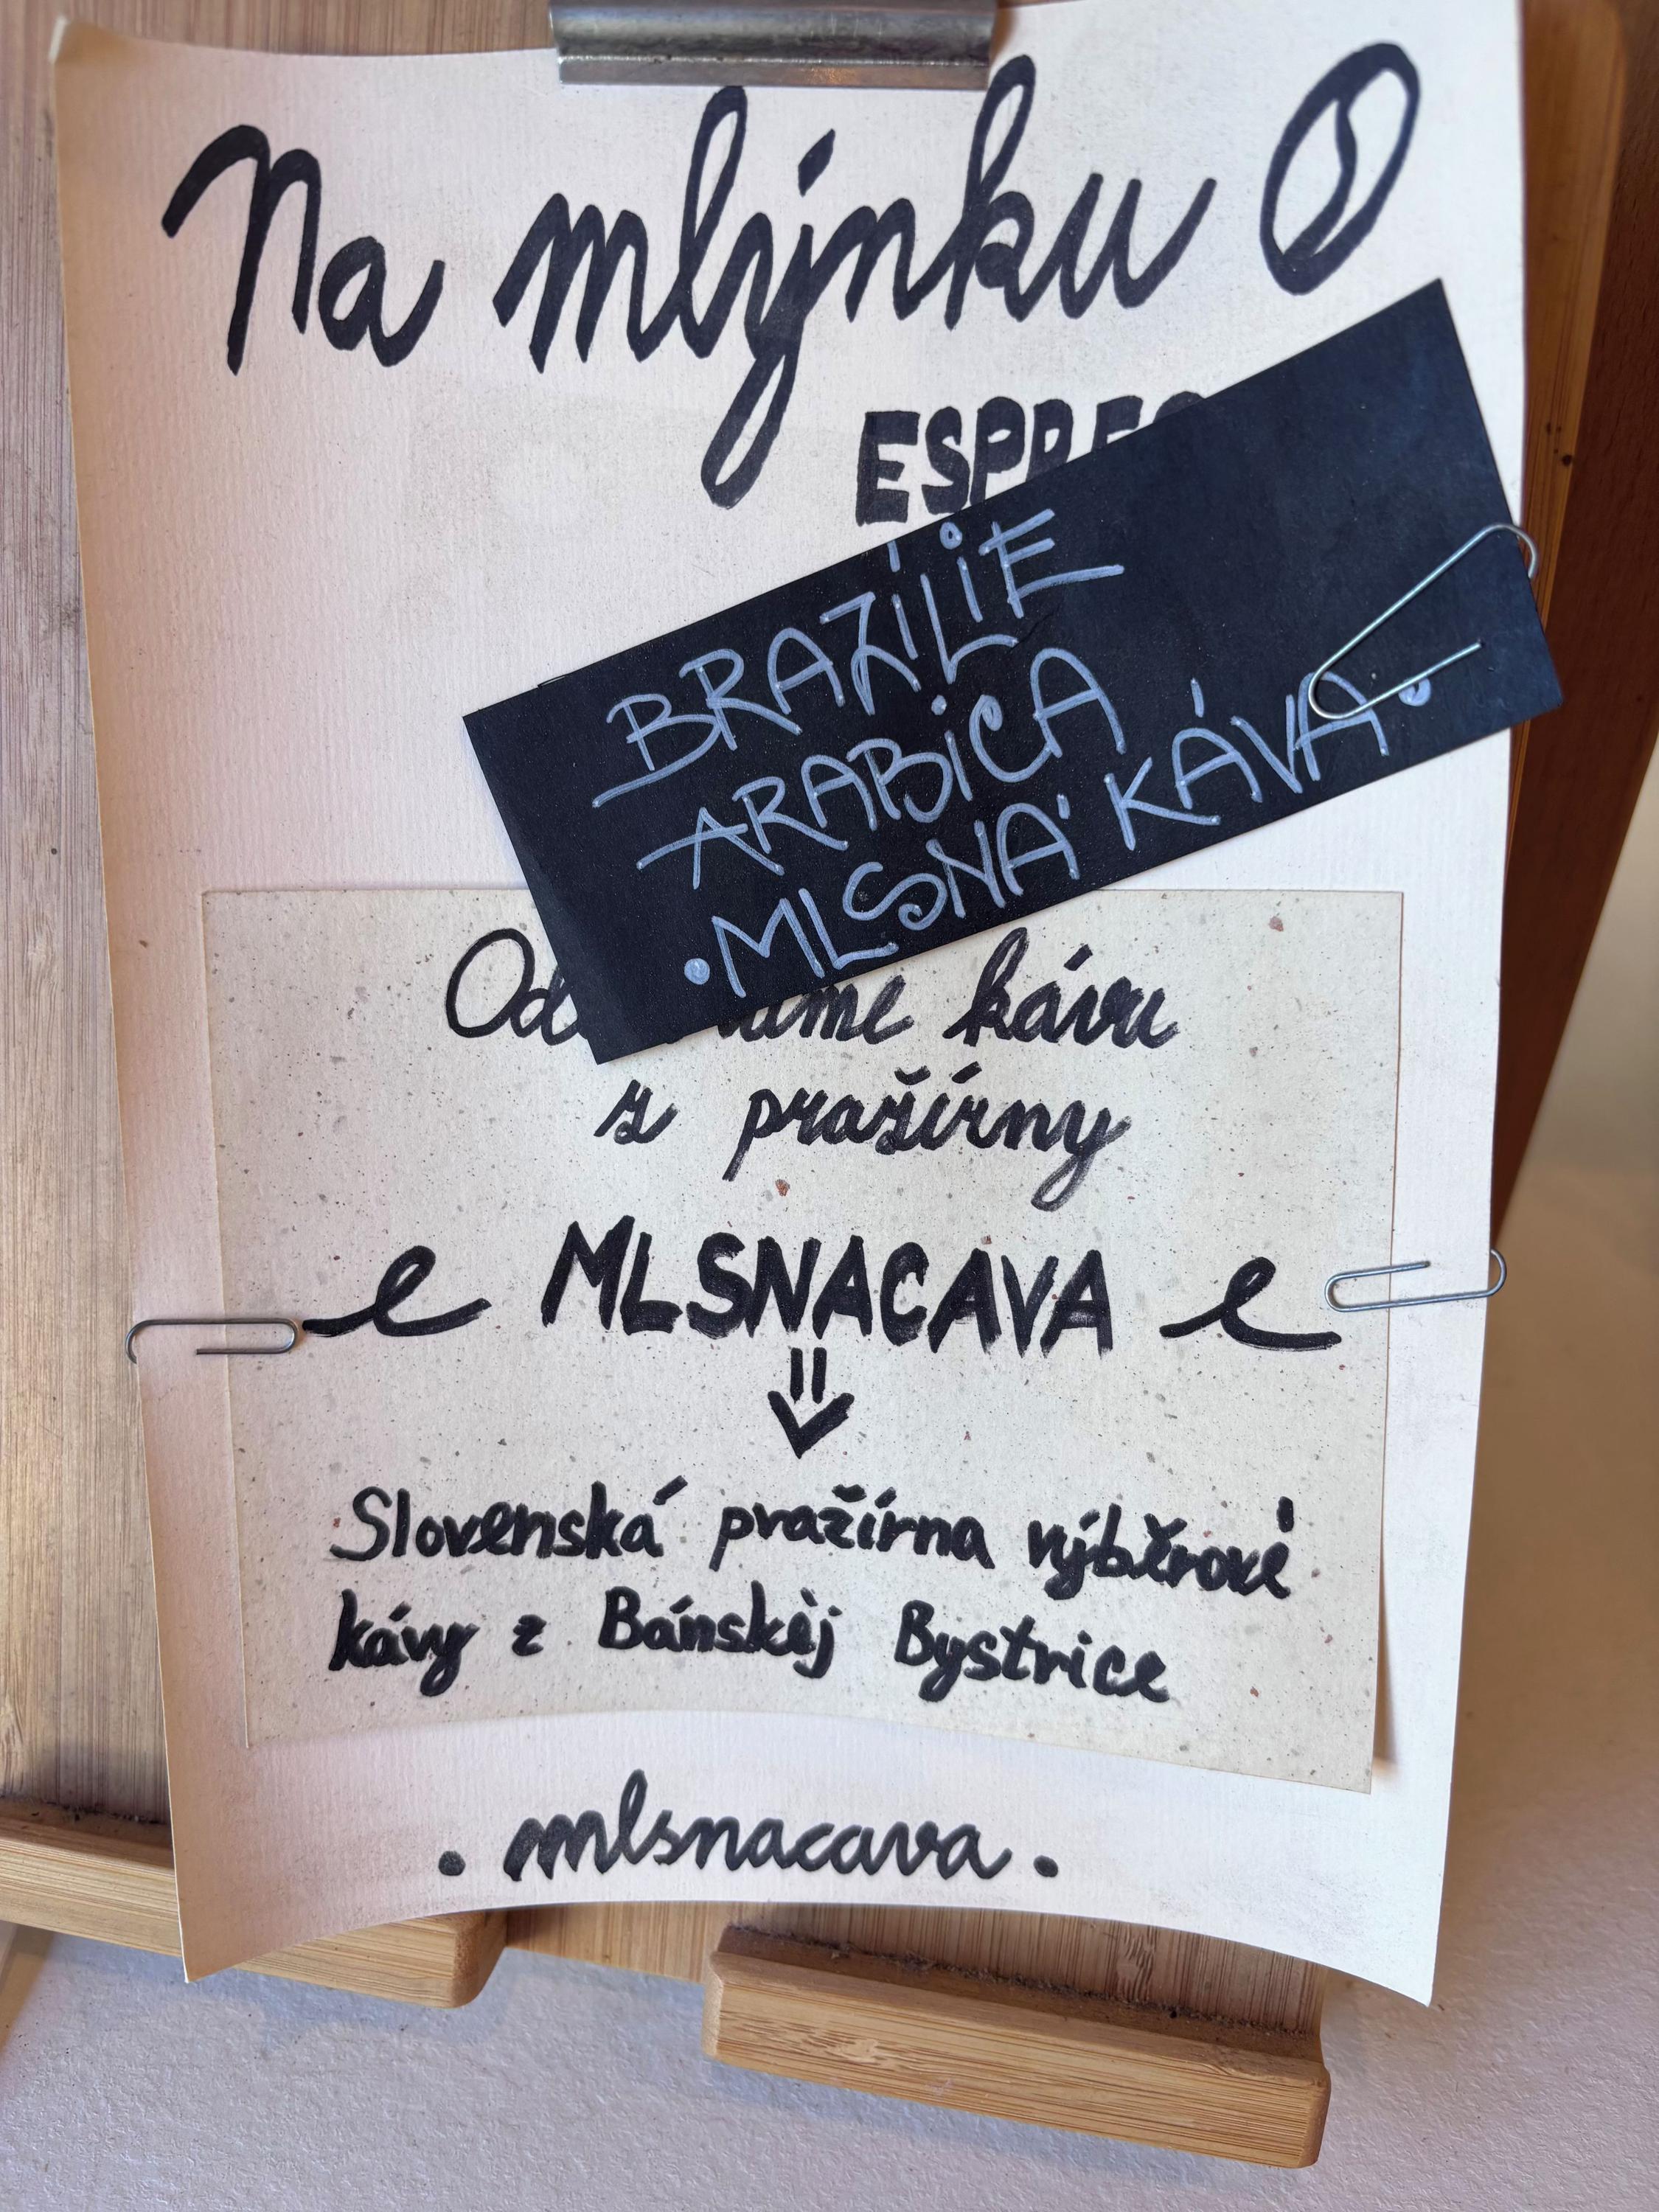 Na mlýnku
BRAZÍLIE
ARABICA
• MLSNÁ KÁVA •
kávu
z pražírny
MLSNACAVA
Slovenská pražírna výběrové
kávy z Bánskěj Bystrice
. mlsnacava .